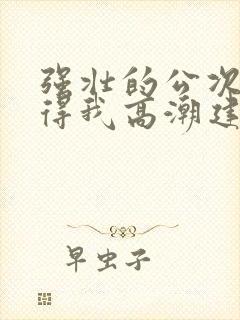 强壮的公次
得我高潮建
早虫子